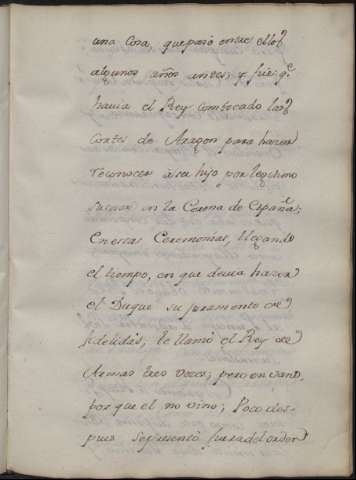 una Cosa, que pasó entre ellos
algunos años antes; y fue q.e
havia el Rey combocado las
Cortes de Aragon para hazer
reconocer à su hijo por legitimo
sucesor en la Corona de España;
En estas Ceremonias, llegando
el tiempo, en que devia hazer
el Duque su juramento de
fidelidad, le llamó el Rey de
Armas tres vezes; pero en vano
porque el no vino; Poco des-
pues se presentó fuera del orden